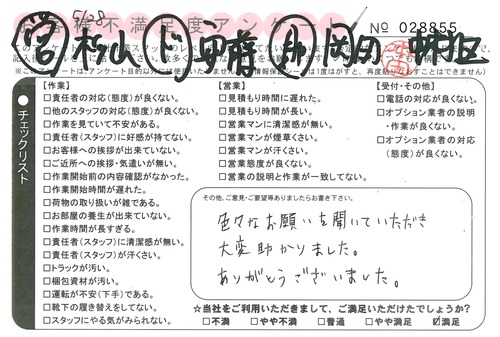 5/28
お客様不満足度アンケート
No 028855
営 松山 ド 安齊 助 岡田
チェックリスト
【作業】
□責任者の対応(態度)が良くない。
□他のスタッフの対応(態度)が良くない。
□作業を見ていて不安がある。
□責任者(スタッフ)に好感が持てない。
□お客様への挨拶が出来ていない。
□ご近所への挨拶・気遣いが無い。
□作業開始前の内容確認がなかった。
□作業開始時間が遅れた。
□荷物の取り扱いが雑である。
□お部屋の養生が出来ていない。
□作業時間が長すぎる。
□責任者(スタッフ)に清潔感が無い。
□責任者(スタッフ)が汗くさい。
□トラックが汚い。
□梱包資材が汚い。
□運転が不安(下手)である。
□靴下の履き替えをしてない。
□スタッフにやる気がみられない。
【営業】
□見積もり時間に遅れた。
□見積もり時間が長い。
□営業マンに清潔感が無い。
□営業マンが煙草くさい。
□営業マンが汗くさい。
□営業態度が良くない。
□営業の説明と作業が一致してない。
【受付・その他】
□電話の対応が良くない。
□オプション業者の説明
・作業が良くない。
□オプション業者の対応
(態度)が良くない。
その他、ご意見・ご要望等ありましたらお書き下さい。
色々なお願いを聞いていただき
大変助かりました。
ありがとうございました。
☆当社をご利用いただきまして、ご満足いただけたでしょうか?
□不満 □やや不満 □普通 □やや満足 ☑満足